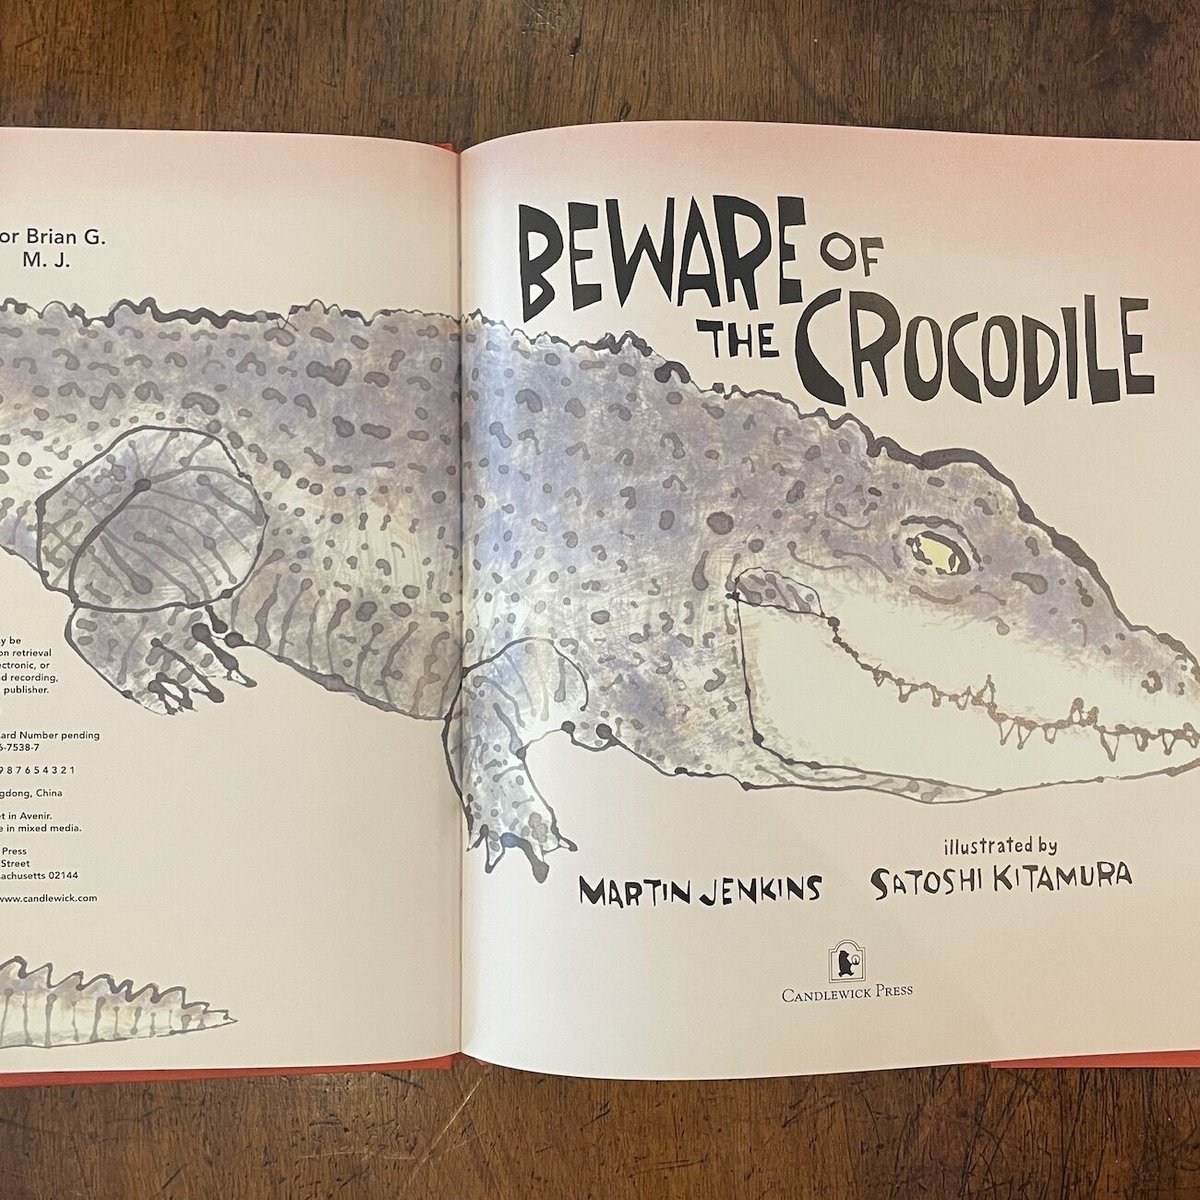 or Brian G.
M. J.
y be
on retrieval
ectronic, or
d recording,
publisher.
Card Number pending
6-7538-7
9 8 7 6 5 4 3 2 1
gdong, China
et in Avenir.
e in mixed media.
Press
Street
achusetts 02144
www.candlewick.com
BEWARE OF
THE CROCODILE
illustrated by
MARTIN JENKINS SATOSHI KITAMURA
CANDLEWICK PRESS